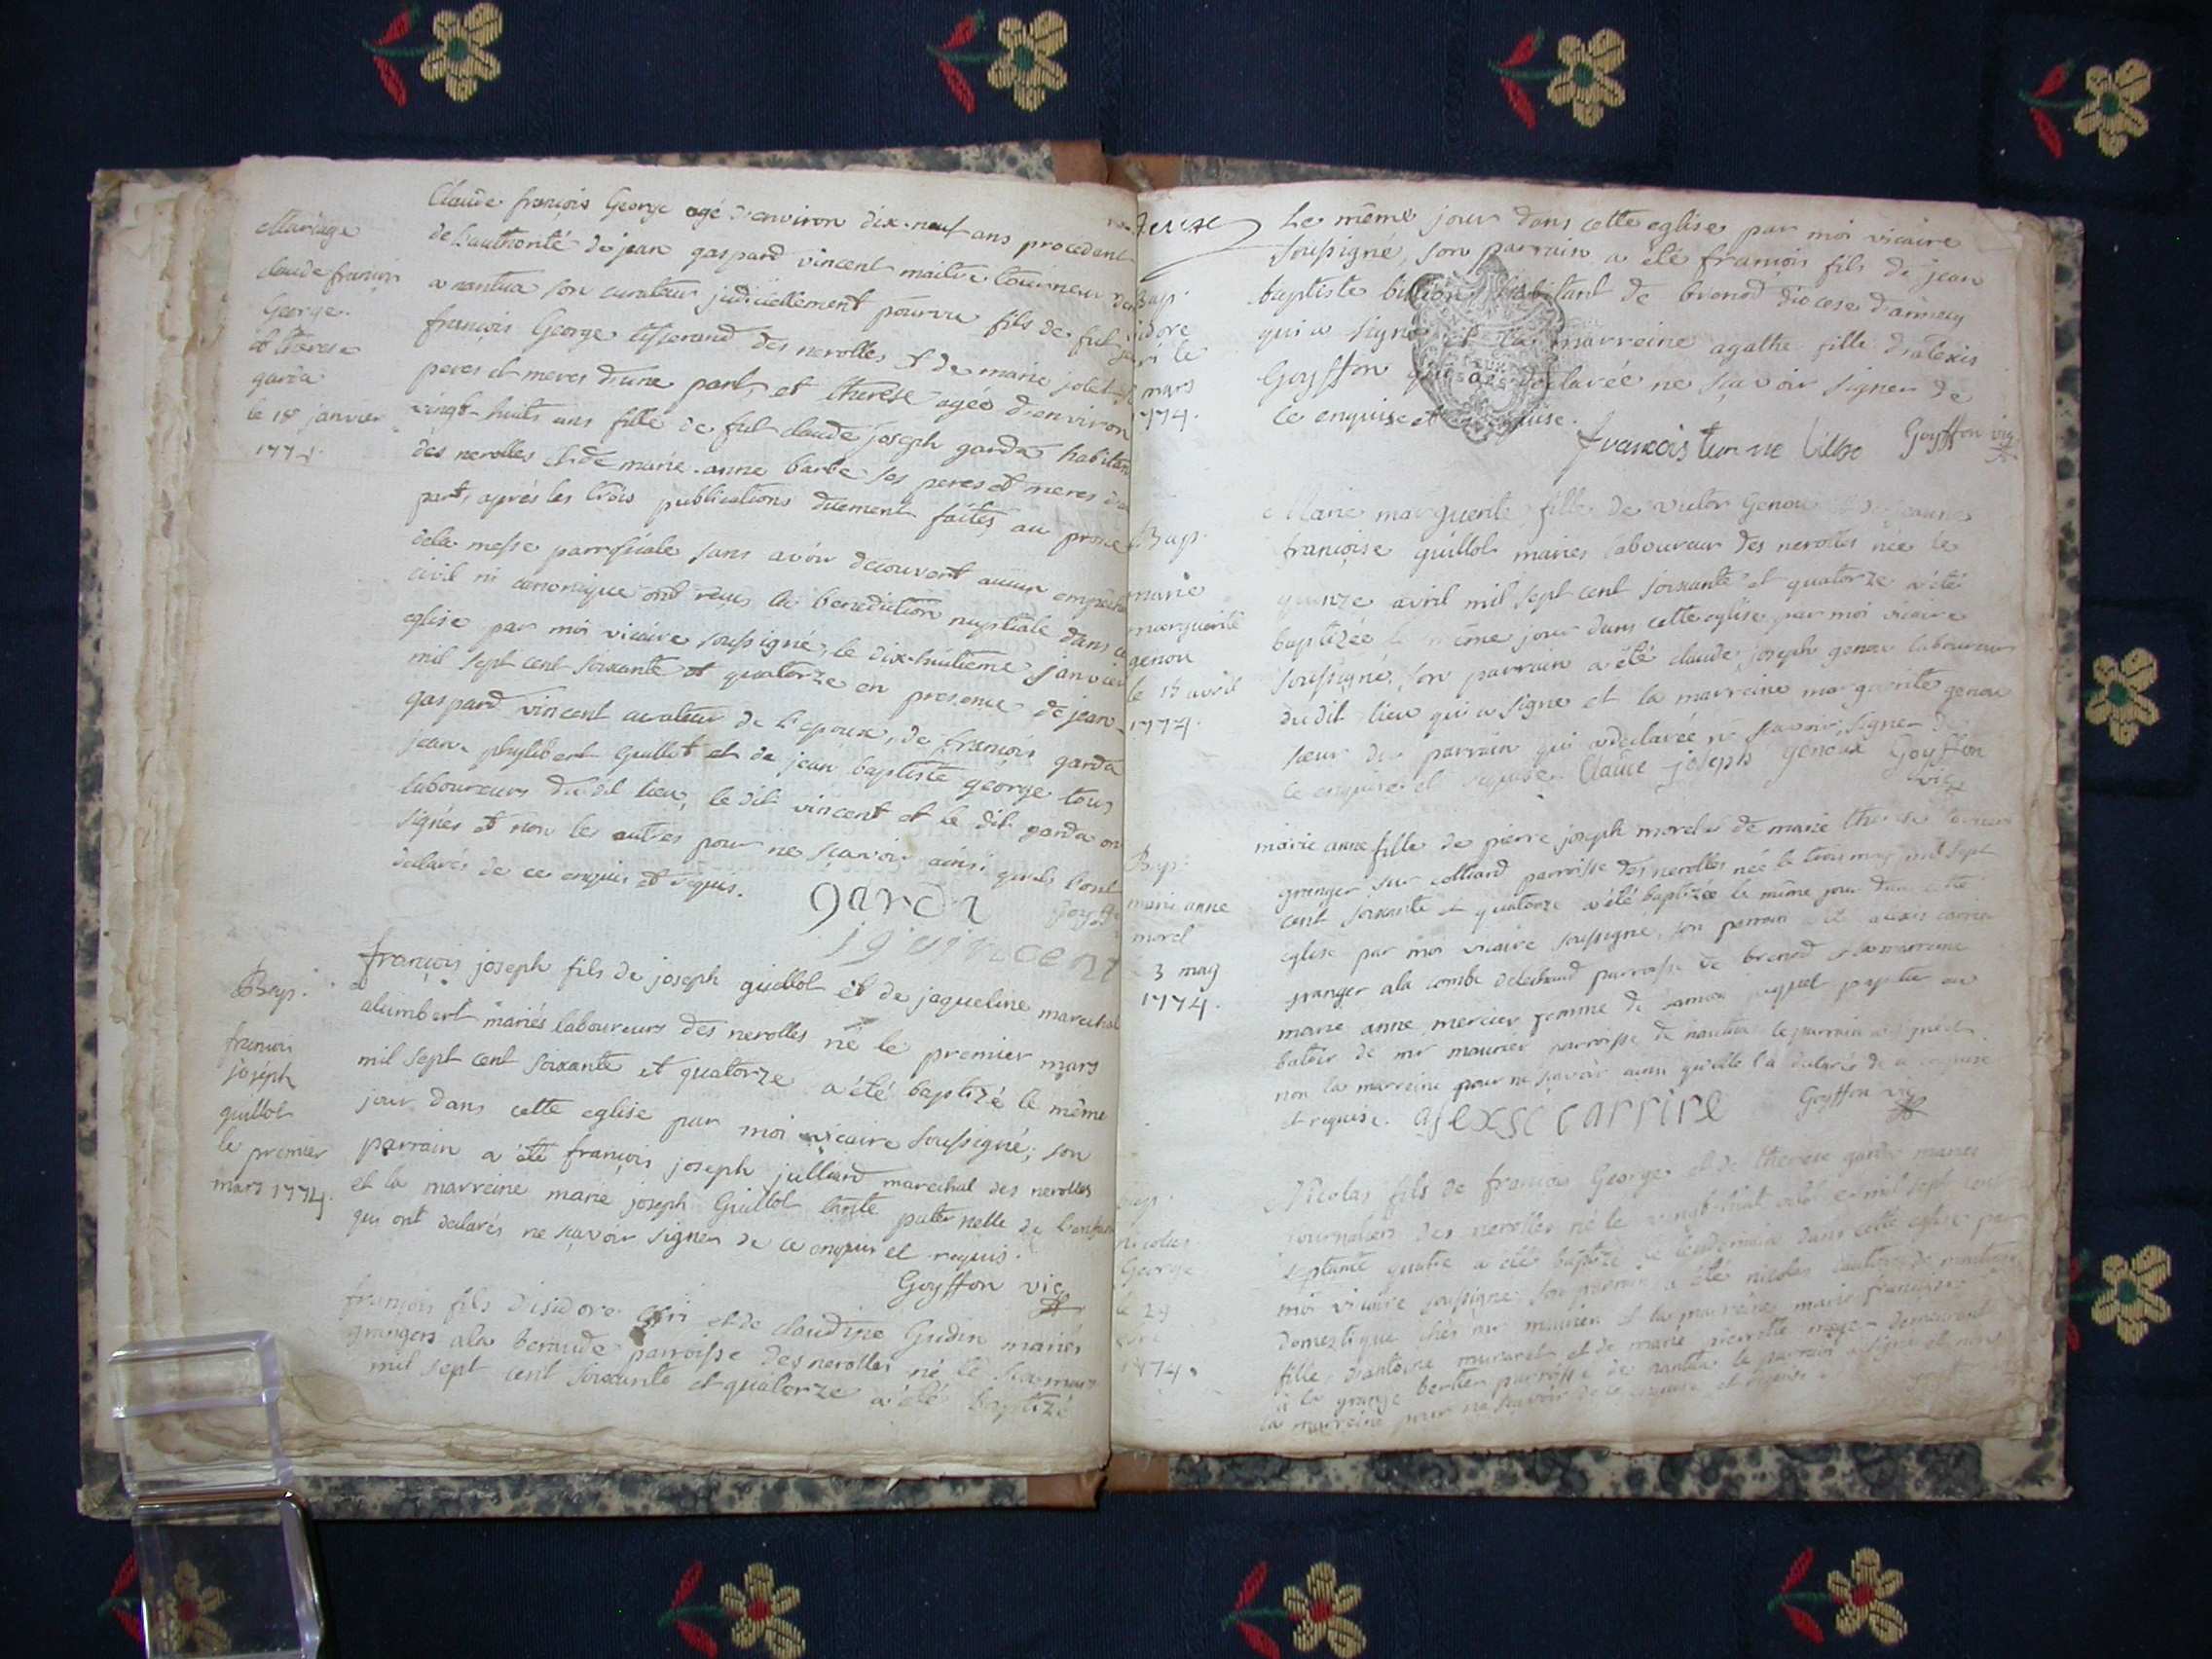 Mariage
claude françois
George
et therese
garda
le 18 janvier
1774
Claude françois George agé d'environ dix-neuf ans procedent
de l'authorité de jean gaspard vincent maitre tourneur
a nantua son curateur judiciellement pourvu fils de fut
françois George tisserand des nerolles et de marie jolet
peres et meres d'une part, et therese agée d'environ
vingt-huits ans fille de fut claude joseph garda habitan
des nerolles et de marie anne barbe ses peres et meres
part, après les trois publications duement faites au prone
dela messe parroissiale sans avoir decouvert aucun
civil ni canonique ont reçus la benediction nuptiale dans
eglise par moi vicaire soussigné, le dix-huitieme janvier
mil sept cent soixante et quatorze en presence de jean
gaspard vincent curateur de l'epoux, de françois garda
jean phylibert guillot et de jean baptiste george tous
laboureurs du dit lieu, le dit vincent et le dit garda on
signés et non les autres pour ne sçavoir ainsi qu'ils l'ont
declarés de ce enquis et requis.
garda
Bap:
françois
joseph
guillot
le premier
mars 1774.
françois joseph fils de joseph guillot et de jaqueline marechal
alumbert mariés laboureurs des nerolles né le premier mars
mil sept cent soixante et quatorze a été baptizé le même
jour dans cette eglise par moi vicaire soussigné; son
parrain a été françois joseph julliard marechal des nerolles
et la marreine marie joseph Guillot tante paternelle de l'enfan
qui ont declarés ne sçavoir signer de ce enquis et requis.
Goyffon vic
françois fils d'isidore et de claudine Gudin mariés
grangers ala beraude parroisse des nerolles né le mars
mil sept cent soixante et quatorze a été baptizé
Bap:
mars
1774.
Le même jour dans cette eglise par moi vicaire
soussigné, son parrain a été françois fils de jean
baptiste habitant de brenod diocese d'annecy
qui a signé et la marreine agathe fille d'alexis
Goyffon qui a declarée ne sçavoir signer de
ce enquise et requise.
françois Goyffon vic
Bap:
marie
marguerite
genou
le 15 avril
1774.
Marie marguerite fille de victor Genou et de jeanne
françoise guillot mariés laboureur des nerolles née le
quinze avril mil sept cent soixante et quatorze a été
baptizée le même jour dans cette eglise par moi vicaire
soussigné, son parrain a été claude joseph genou laboureur
du dit lieu qui a signé et la marreine marguerite genou
sœur du parrain qui a declarée ne sçavoir signer de
ce enquise et requise. Claude joseph genoux Goyffon
vic
Bap:
marie anne
morel
3 may
1774.
marie anne fille de pierre joseph morel et de marie therese
granger sur colliard parroisse des nerolles née le trois may mil sept
cent soixante et quatorze a été baptizée le même jour dans cette
eglise par moi vicaire soussigné, son parrain a été alexis
granger ala combe parroisse de brenod et la marreine
marie anne mercier femme de
de mr maunier parroisse de nantua le parrain a signé et
non la marreine pour ne sçavoir ainsi qu'elle l'a declarée de ce enquise
et requise. alexse carrire Goyffon vic
Bap:
nicolas
George
1774.
Nicolas fils de françois George et de therese garda mariés
journaliers des nerolles né le vingt-huit mil sept cent
septante quatre a été baptizé le lendemain dans cette eglise par
moi vicaire soussigné son parrain a été nicolas
domestique chés mr maunier et la marreine marie françoise
fille d'antoine et de marie pierrette demeurant
à la grange bertier parroisse de nantua le parrain a signé et non
la marreine pour ne sçavoir de ce enquise et requise